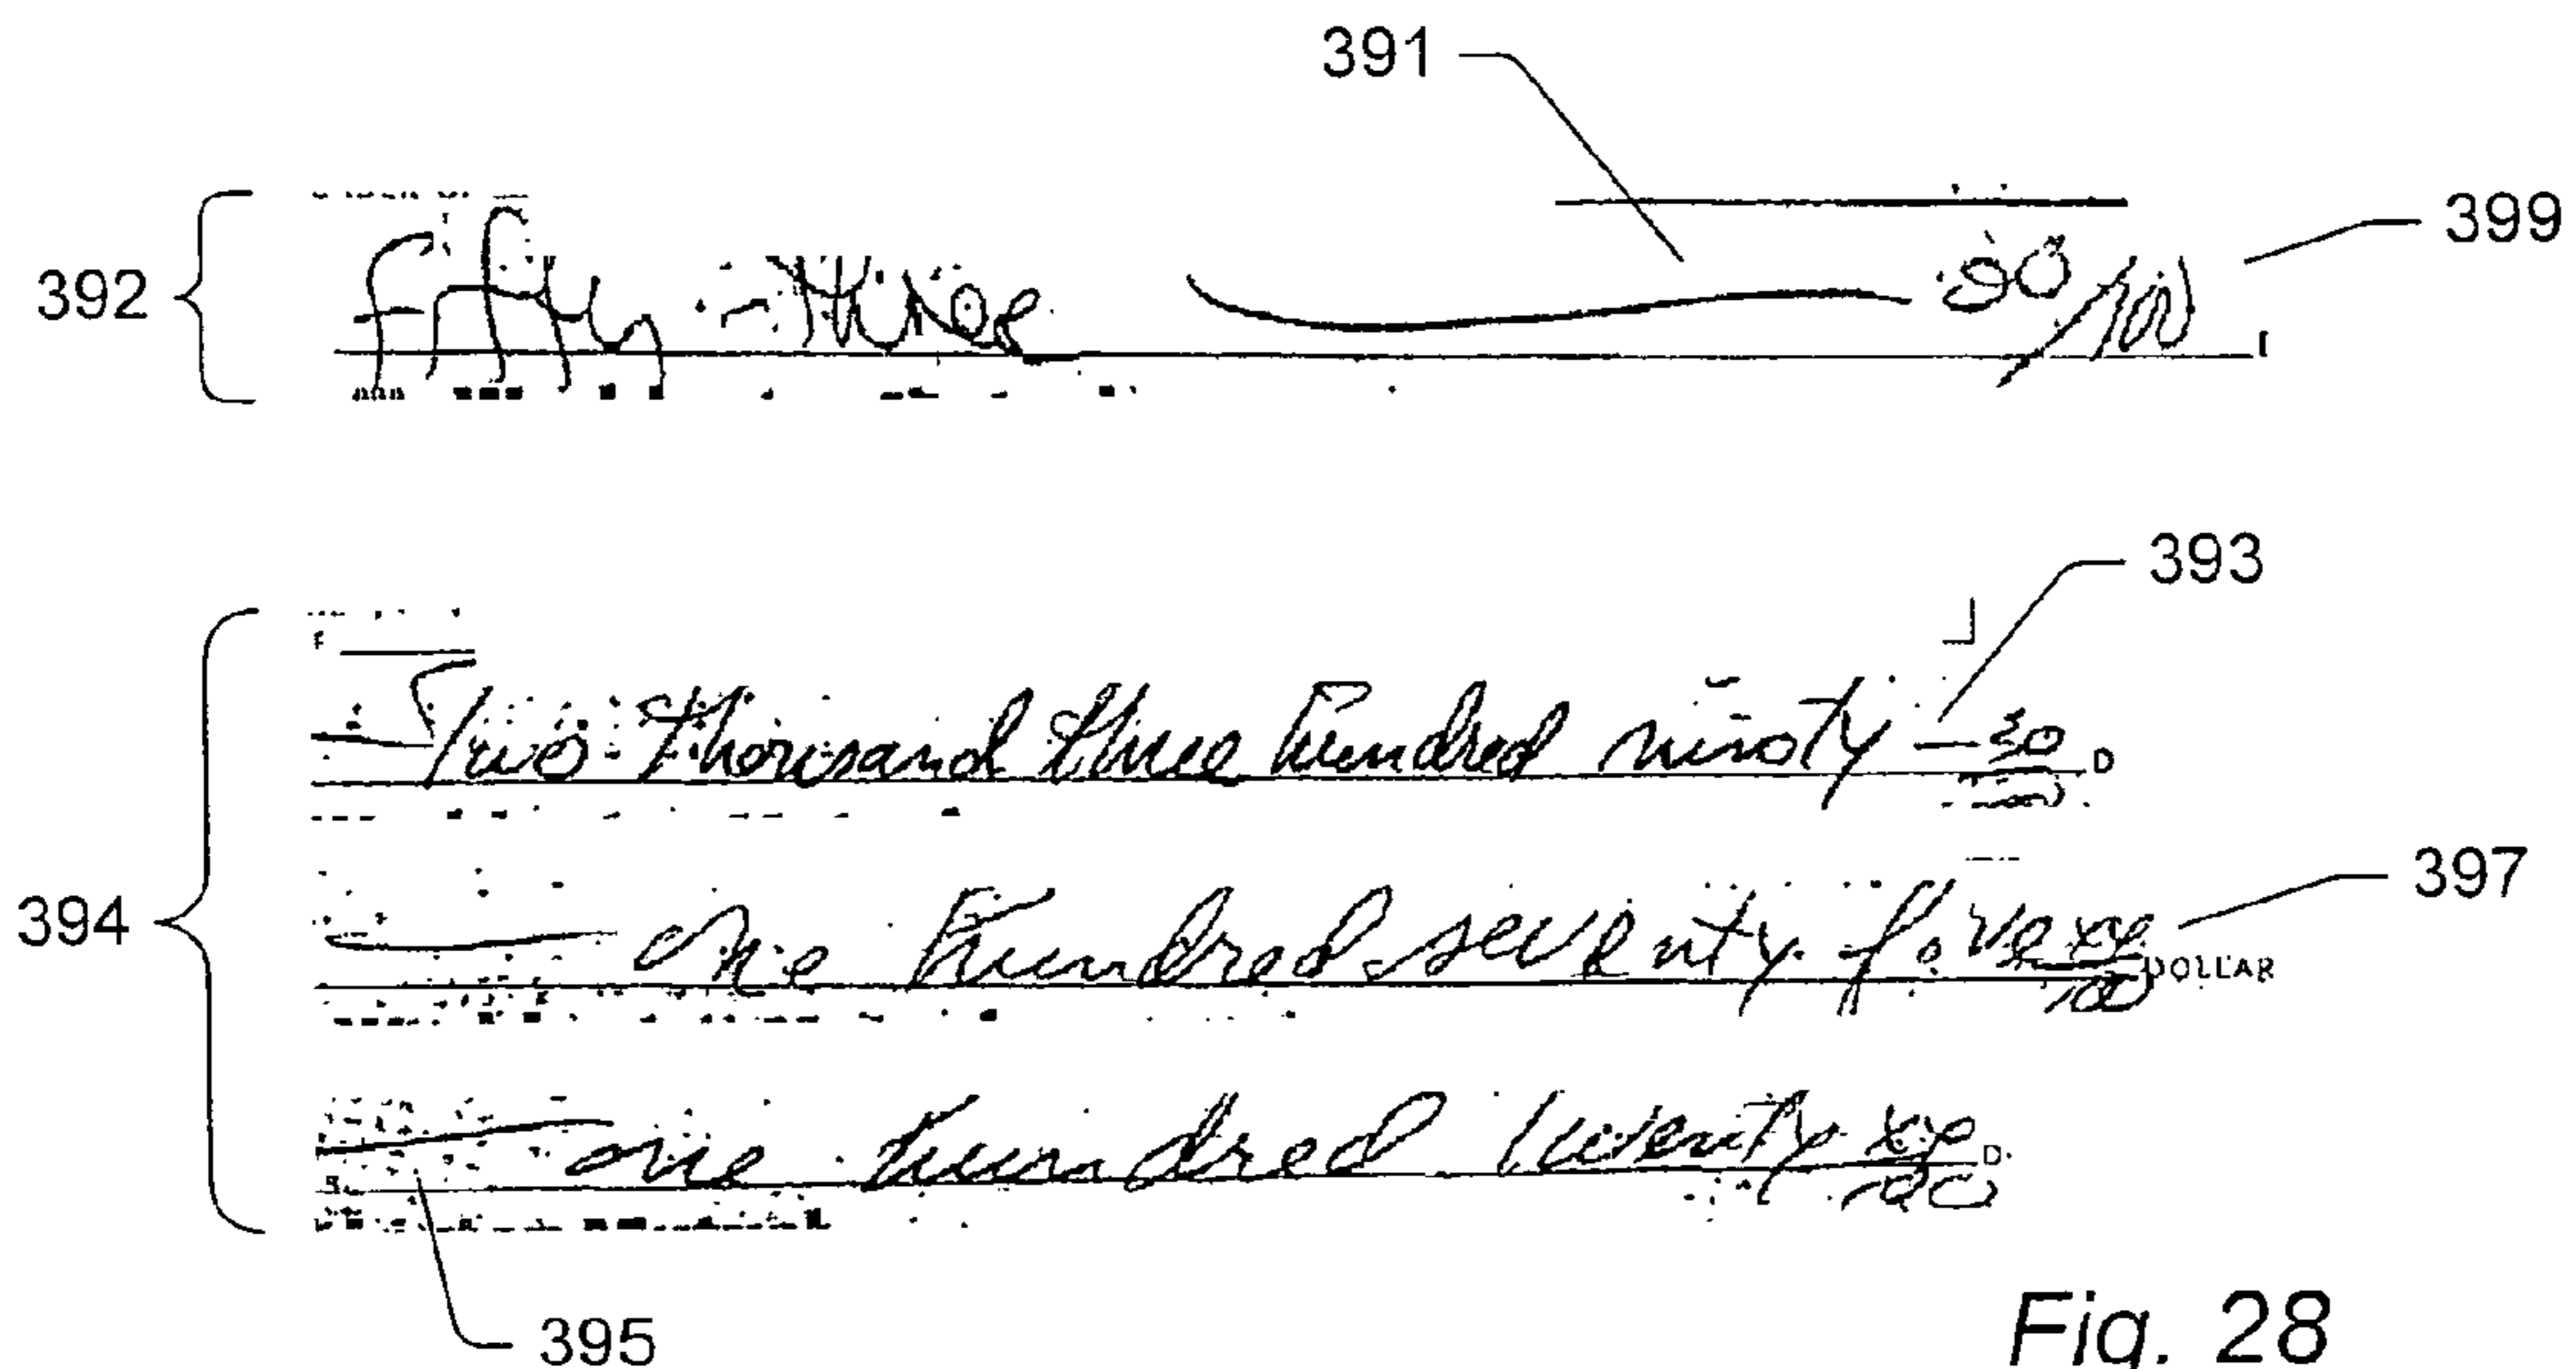 391
399
392
Fifty - three 90/100
393
Two thousand three hundred ninoty — 30/100 D
397
394
One hundred seventy five xx/100 DOLLAR
one hundred twenty xx/100 D
395
Fig. 28